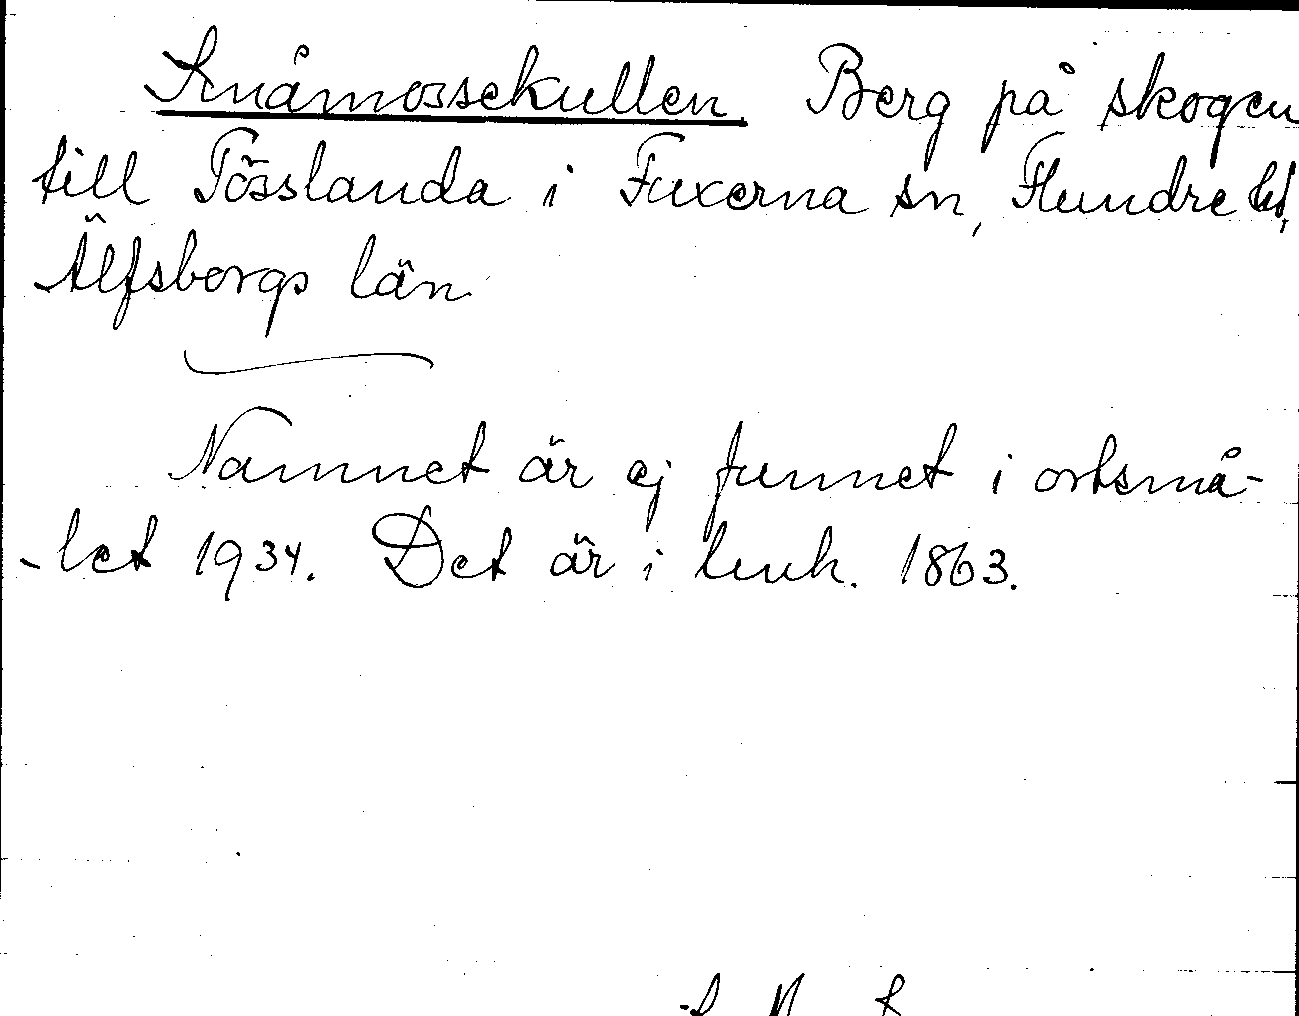 Knåmossekullen. Berg på skogen
till Tösslanda i Fuxerna sn, Flundre hd,
Älfsborgs län
Namnet är ej funnet i ortsmå-
-let 1934. Det är i luuh. 1863.